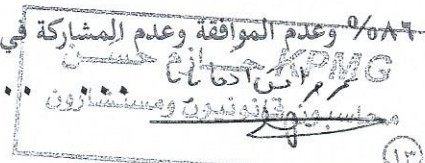 ٨٦% وعدم الموافقة وعدم المشاركة في
KPMG حازم حسن
محاسبون قانونيون ومستشارون
١٣